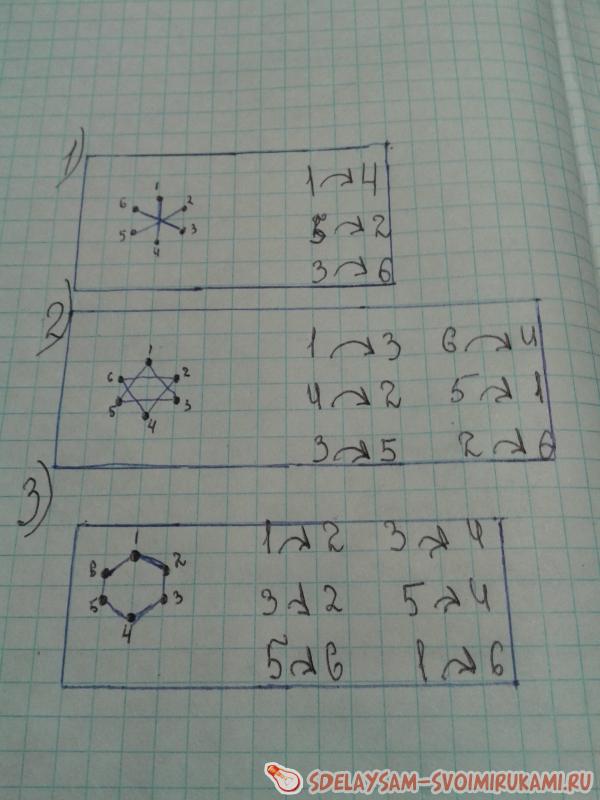 1)
1
6 2
5 3
4
1 → 4
5 → 2
3 → 6
2)
1
6 2
5 3
4
1 → 3 6 → 4
4 → 2 5 → 1
3 → 5 2 → 6
3)
1
6 2
5 3
4
1 → 2 3 → 4
3 → 2 5 → 4
5 → 6 1 → 6
SDELAYSAM-SVOIMIRUKAMI.RU